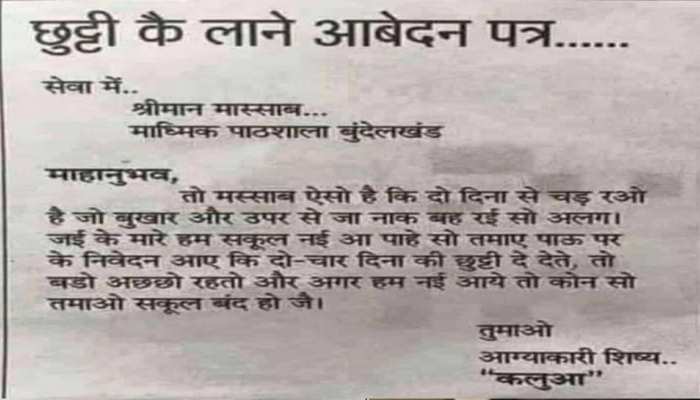 छुट्टी कै लाने आबेदन पत्र......
सेवा में..
श्रीमान मास्साब...
माध्मिक पाठशाला बुंदेलखंड
माहानुभव,
तो मस्साब ऐसो है कि दो दिना से चड़ रओ
है जो बुखार और उपर से जा नाक बह रई सो अलग।
जई के मारे हम सकूल नई आ पाहे सो तमाए पाऊ पर
के निवेदन आए कि दो-चार दिना की छुट्टी दे देते, तो
बडो अछछो रहतो और अगर हम नई आये तो कोन सो
तमाओ सकूल बंद हो जै।
तुमाओ
आग्याकारी शिष्य..
“कलुआ”